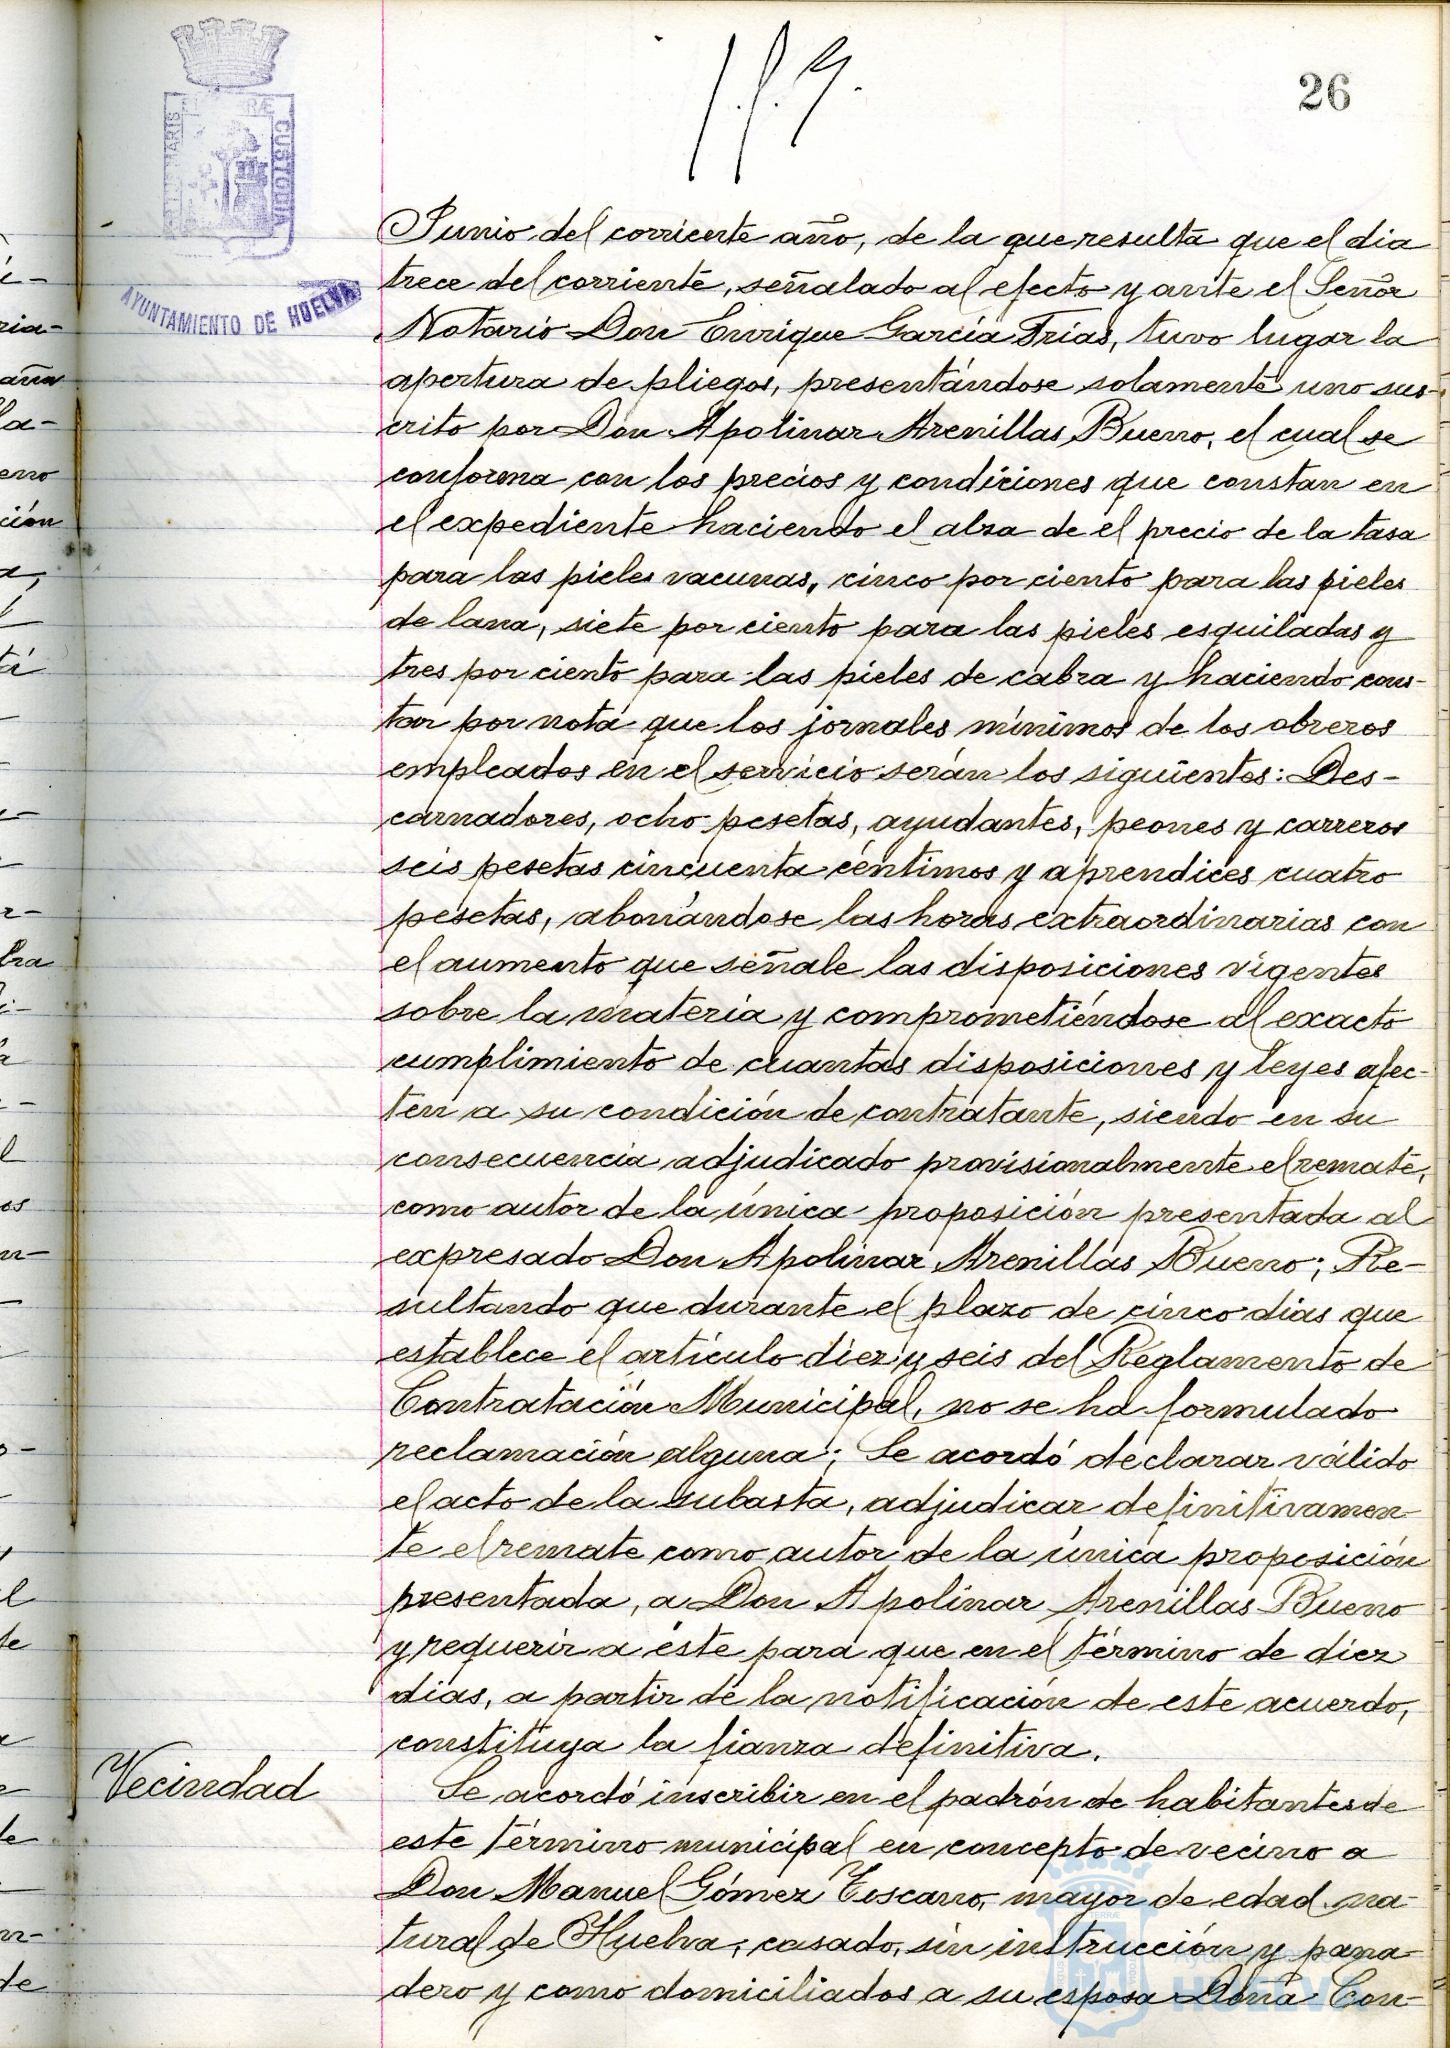 26
AYUNTAMIENTO DE HUELVA
Junio del corriente año, de la que resulta que el dia
trece del corriente, señalado al efecto y ante el Señor
Notario Don Enrique García Frías, tuvo lugar la
apertura de pliegos, presentándose solamente uno sus-
crito por Don Apolinar Arenillas Bueno, el cual se
conforma con los precios y condiciones que constan en
el expediente haciendo el alza de el precio de la tasa
para las pieles vacunas, cinco por ciento para las pieles
de lana, siete por ciento para las pieles esquiladas y
tres por ciento para las pieles de cabra y haciendo cons-
tar por nota que los jornales mínimos de los obreros
empleados en el servicio serán los siguientes: Des-
carnadores, ocho pesetas, ayudantes, peones y carreros
seis pesetas cincuenta céntimos y aprendices cuatro
pesetas, abonándose las horas extraordinarias con
el aumento que señale las disposiciones vigentes
sobre la materia y comprometiéndose al exacto
cumplimiento de cuantas disposiciones y leyes afec-
ten a su condición de contratante, siendo en su
consecuencia adjudicado provisionalmente el remate,
como autor de la única proposición presentada al
expresado Don Apolinar Arenillas Bueno; Re-
sultando que durante el plazo de cinco dias que
establece el artículo diez y seis del Reglamento de
Contratación Municipal, no se ha formulado
reclamación alguna; Se acordó declarar válido
el acto de la subasta, adjudicar definitivamen-
te el remate como autor de la única proposición
presentada, a Don Apolinar Arenillas Bueno
y requerir a éste para que en el término de diez
dias, a partir de la notificación de este acuerdo,
constituya la fianza definitiva.
Vecindad
Se acordó inscribir en el padrón de habitantes de
este término municipal en concepto de vecino a
Don Manuel Gómez Toscano, mayor de edad, na-
tural de Huelva, casado, sin instrucción y pana-
dero y como domiciliados a su esposa Doña Con-